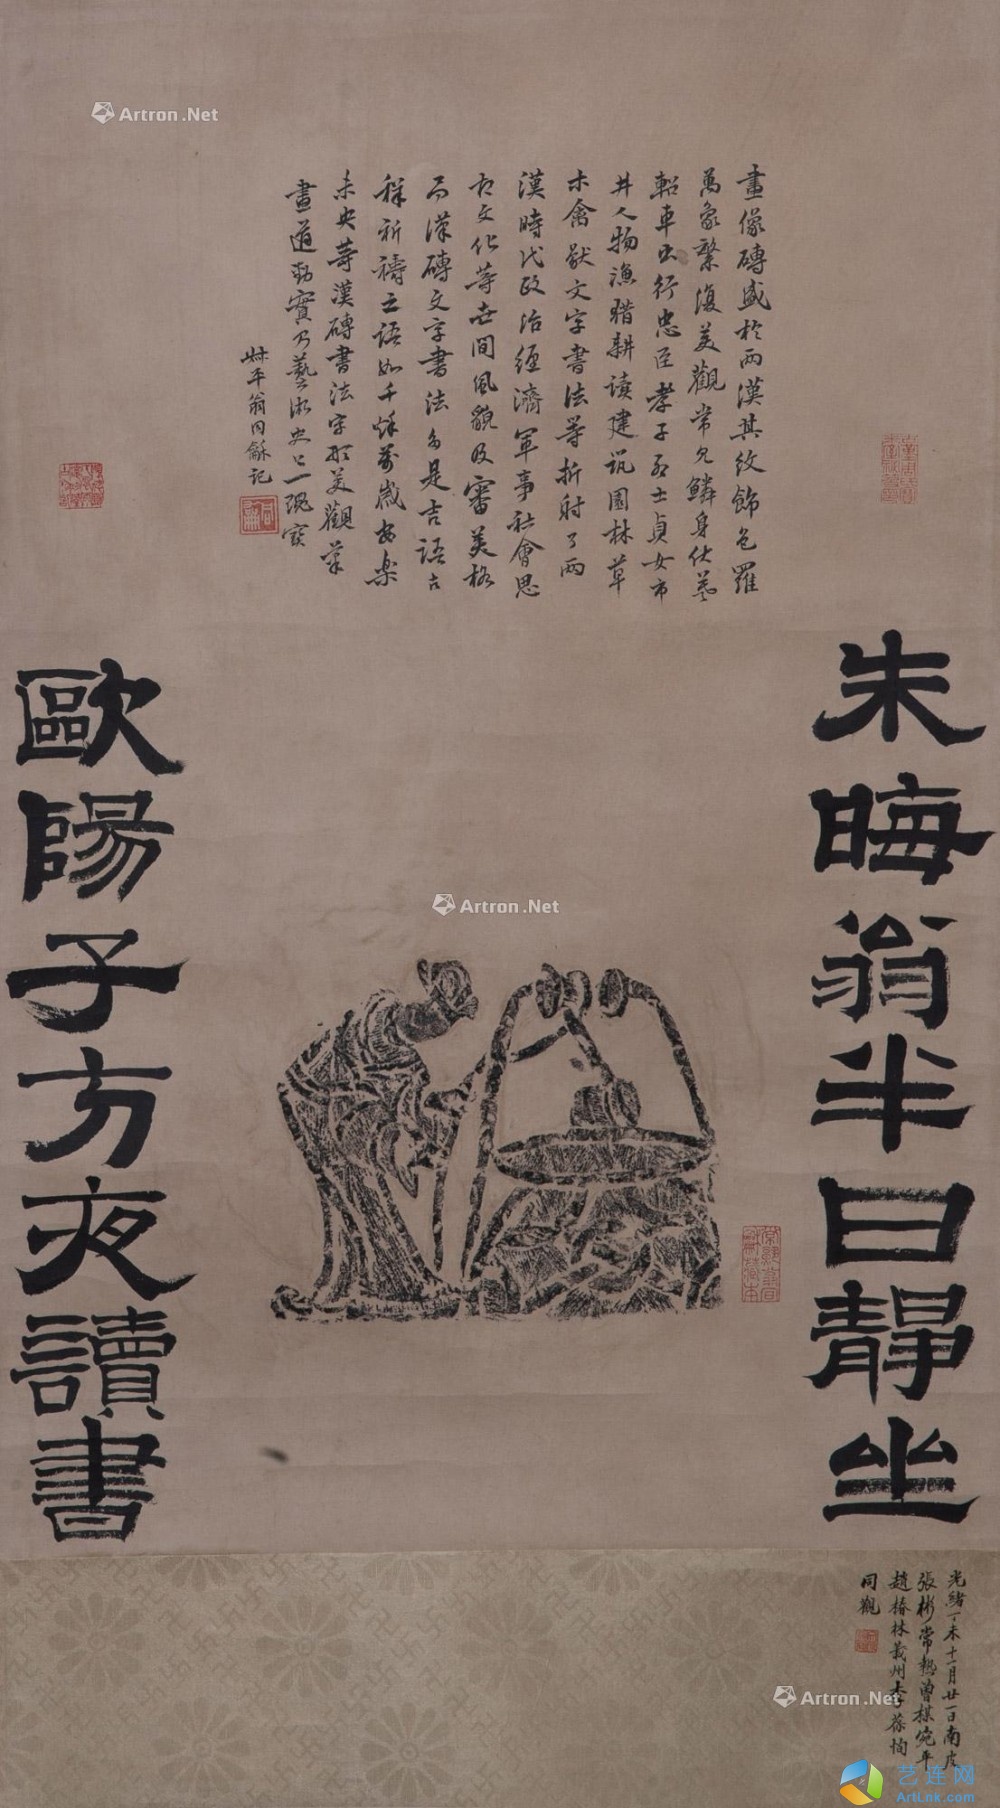 畫像磚盛於兩漢其紋飾包羅
萬象繁復美觀常見鱗身伏羲
軺車出行忠臣孝子烈士貞女市
井人物漁獵耕读建筑園林草
木禽獸文字書法等折射了兩
漢時代政治經濟軍事社會思
想文化等世間風貌及審美格
而漢磚文字書法多是吉語古
祥祈禱之語如千秋萬歲安樂
未央等漢磚書法字形美觀筆
畫遒勁實乃藝術史上一瑰宝
叔平翁同龢記
朱晦翁半日靜坐
歐陽子方夜讀書
光緒丁未十一月廿一日南皮
張彬常熟曾樸宛平
趙椿林義州李葆恂
同觀
Artron.Net
Artron.Net
Artron.Net
艺连网
ArtLnk.com